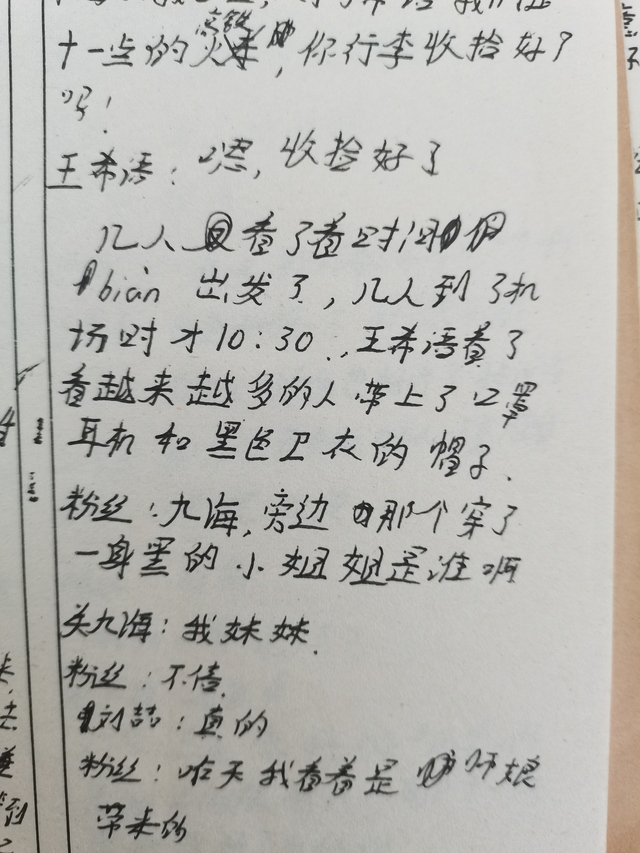 十一点的高铁，你行李收拾好了
吗！
王希语：嗯，收捡好了
几人看了看时间们
bian 出发了，几人到了机
场时才10:30.，王希语看了
看越来越多的人带上了口罩
耳机和黑色卫衣的帽子.
粉丝：九海，旁边那个穿了
一身黑的小姐姐是谁啊
关九海：我妹妹.
粉丝：不信.
刘喆：真的
粉丝：昨天我看着是师娘
带来的